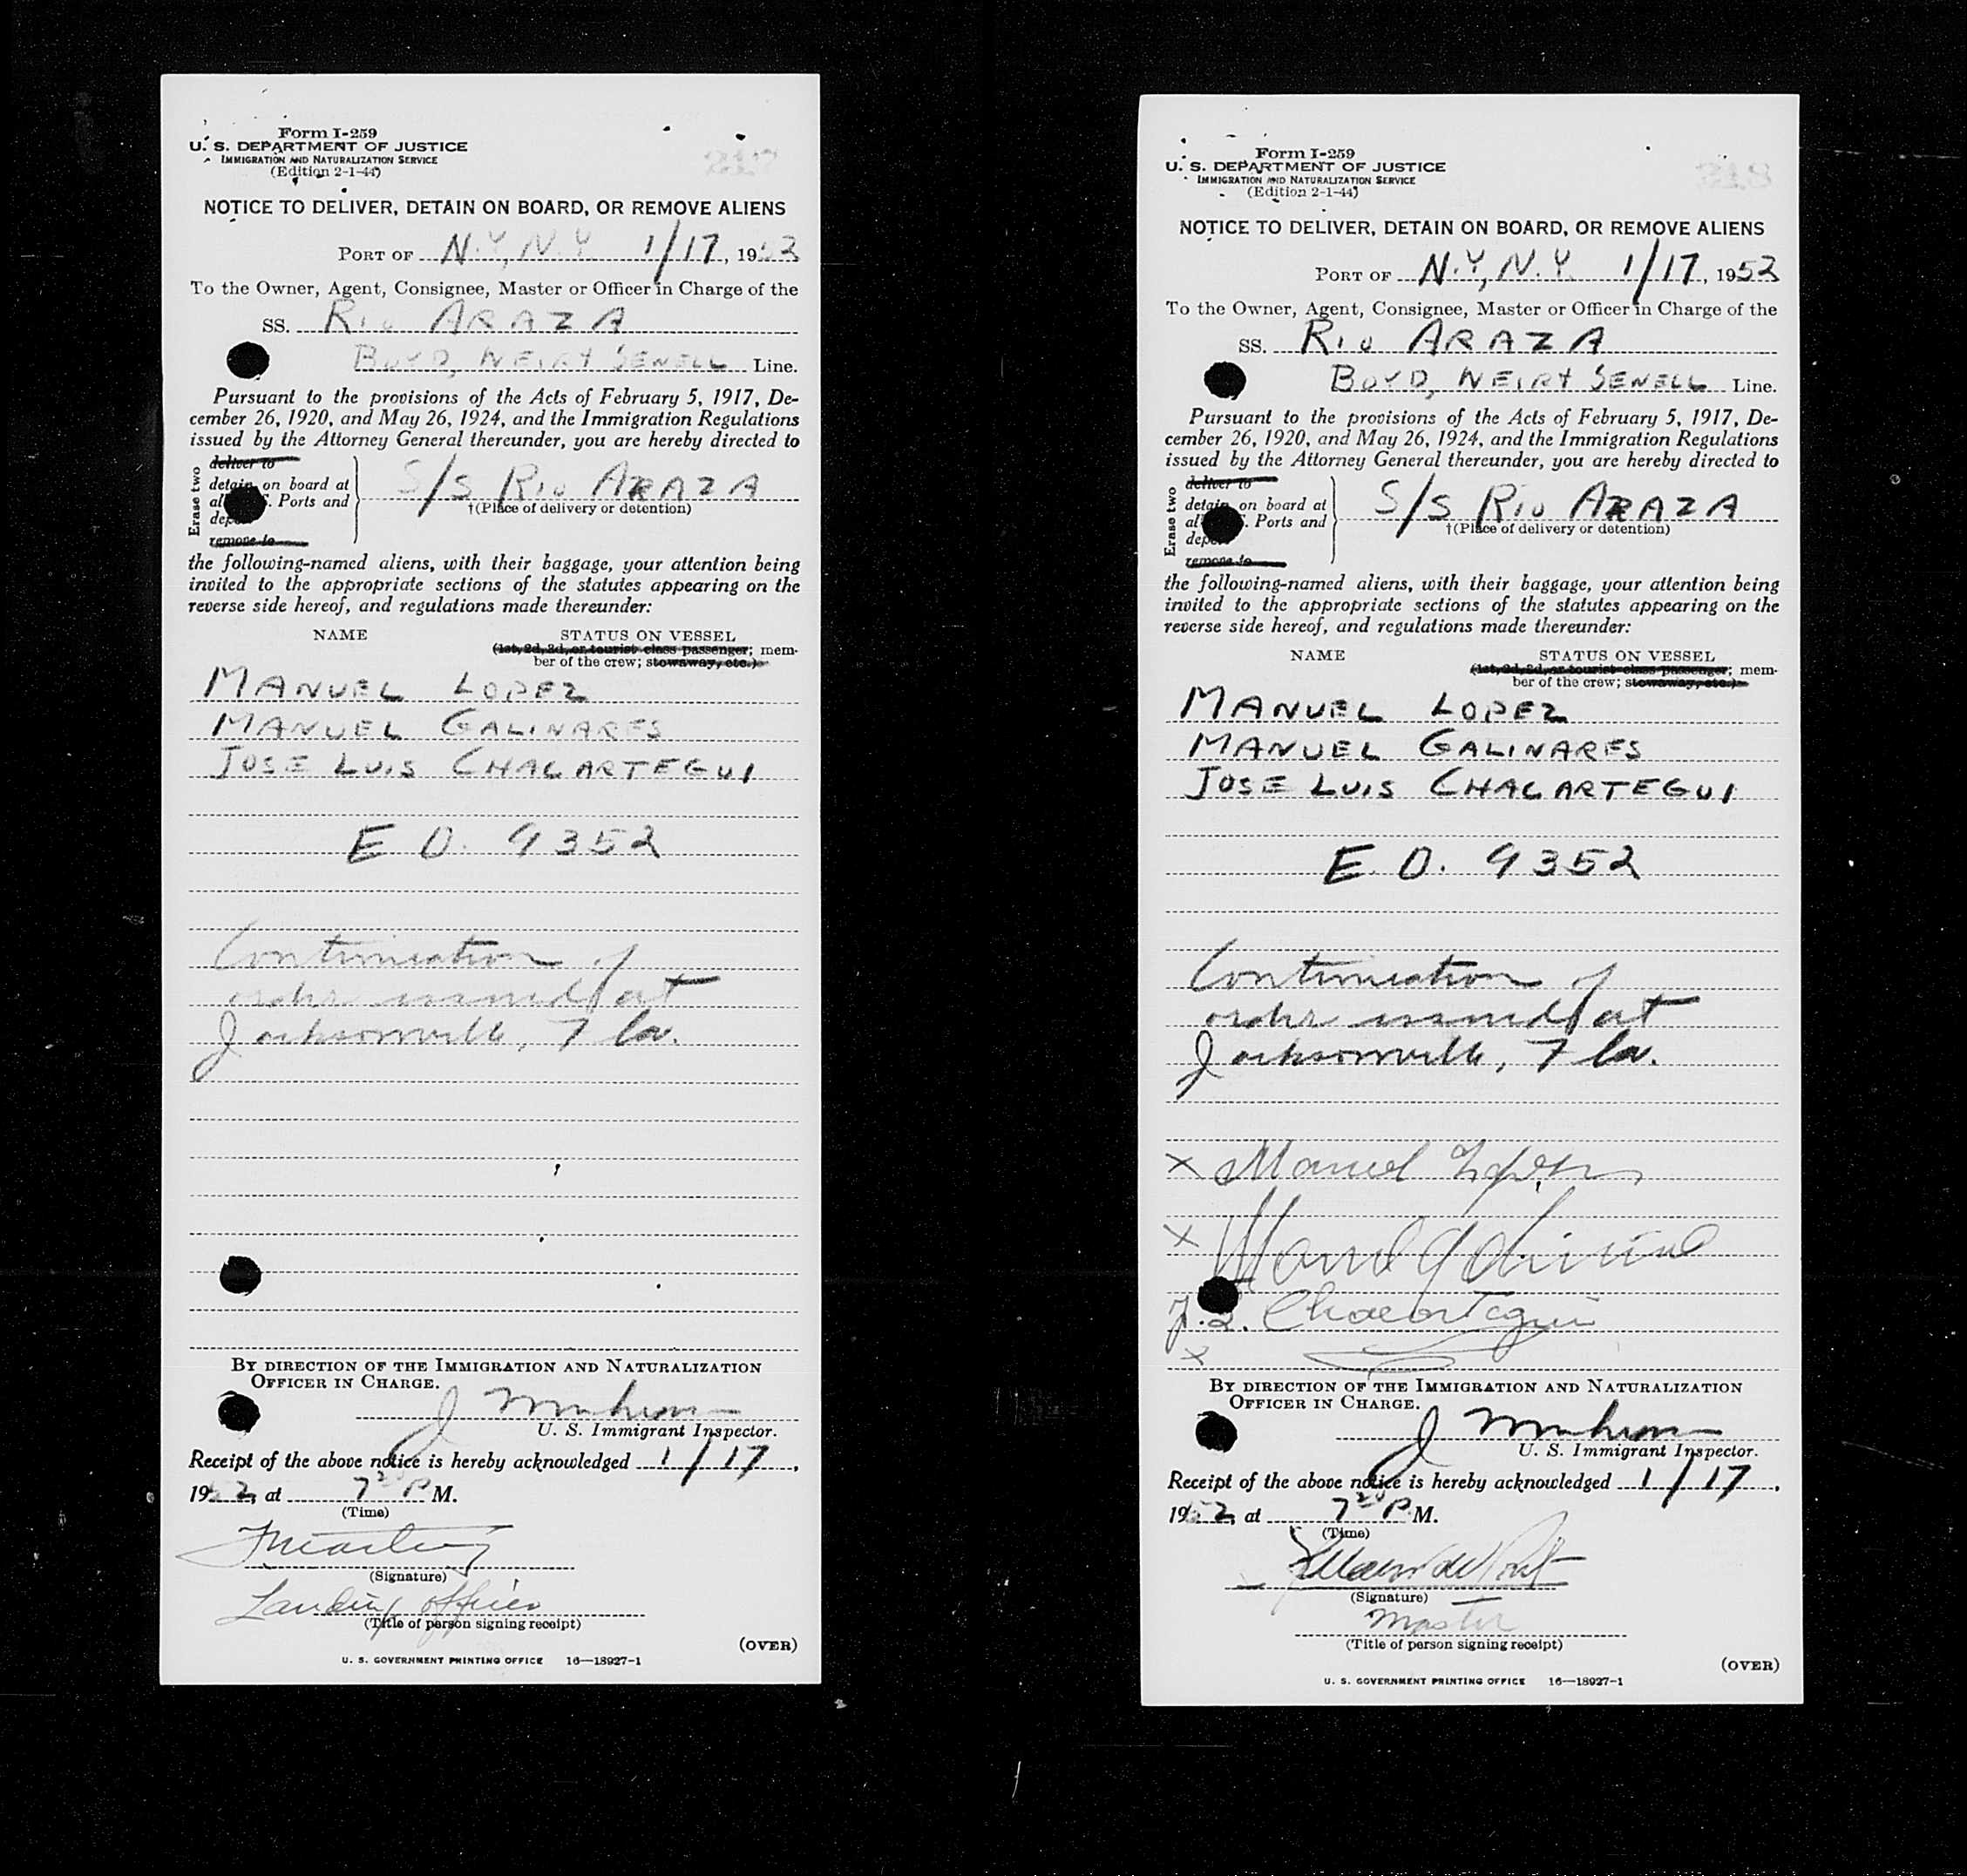 Form I-259
U. S. DEPARTMENT OF JUSTICE
IMMIGRATION AND NATURALIZATION SERVICE
(Edition 2-1-44)
NOTICE TO DELIVER, DETAIN ON BOARD, OR REMOVE ALIENS
PORT OF N.Y., N.Y. 1/17, 1952
To the Owner, Agent, Consignee, Master or Officer in Charge of the
SS. RIO ARAZA
BOYD, WEIR & SEWELL Line.
Pursuant to the provisions of the Acts of February 5, 1917, De-
cember 26, 1920, and May 26, 1924, and the Immigration Regulations
issued by the Attorney General thereunder, you are hereby directed to
Erase two
deliver to
detain on board at
all U. S. Ports and
deport
remove to
S/S RIO ARAZA
†(Place of delivery or detention)
the following-named aliens, with their baggage, your attention being
invited to the appropriate sections of the statutes appearing on the
reverse side hereof, and regulations made thereunder:
NAME STATUS ON VESSEL
(1st, 2d, 3d, or tourist class passenger; mem-
ber of the crew; stowaway, etc.)
MANUEL LOPEZ
MANUEL GALINARES
JOSE LUIS CHACARTEGUI
E. O. 9352
Continuation of
order issued at
Jacksonville, Fla.
BY DIRECTION OF THE IMMIGRATION AND NATURALIZATION
OFFICER IN CHARGE.
U. S. Immigrant Inspector.
Receipt of the above notice is hereby acknowledged 1/17,
1952, at 7 20 P. M.
(Time)
(Signature)
Landing officer
(Title of person signing receipt)
(OVER)
U. S. GOVERNMENT PRINTING OFFICE 16—18927-1
Form I-259
U. S. DEPARTMENT OF JUSTICE
IMMIGRATION AND NATURALIZATION SERVICE
(Edition 2-1-44)
NOTICE TO DELIVER, DETAIN ON BOARD, OR REMOVE ALIENS
PORT OF N.Y., N.Y. 1/17, 1952
To the Owner, Agent, Consignee, Master or Officer in Charge of the
SS. RIO ARAZA
BOYD, WEIR & SEWELL Line.
Pursuant to the provisions of the Acts of February 5, 1917, De-
cember 26, 1920, and May 26, 1924, and the Immigration Regulations
issued by the Attorney General thereunder, you are hereby directed to
Erase two
deliver to
detain on board at
all U. S. Ports and
deport
remove to
S/S RIO ARAZA
†(Place of delivery or detention)
the following-named aliens, with their baggage, your attention being
invited to the appropriate sections of the statutes appearing on the
reverse side hereof, and regulations made thereunder:
NAME STATUS ON VESSEL
(1st, 2d, 3d, or tourist class passenger; mem-
ber of the crew; stowaway, etc.)
MANUEL LOPEZ
MANUEL GALINARES
JOSE LUIS CHACARTEGUI
E. O. 9352
Continuation of
order issued at
Jacksonville, Fla.
x Manuel Lopez
x Manuel
J. L. Chacartegui
x
BY DIRECTION OF THE IMMIGRATION AND NATURALIZATION
OFFICER IN CHARGE.
U. S. Immigrant Inspector.
Receipt of the above notice is hereby acknowledged 1/17,
1952, at 7 20 P. M.
(Time)
(Signature)
Master
(Title of person signing receipt)
(OVER)
U. S. GOVERNMENT PRINTING OFFICE 16—18927-1